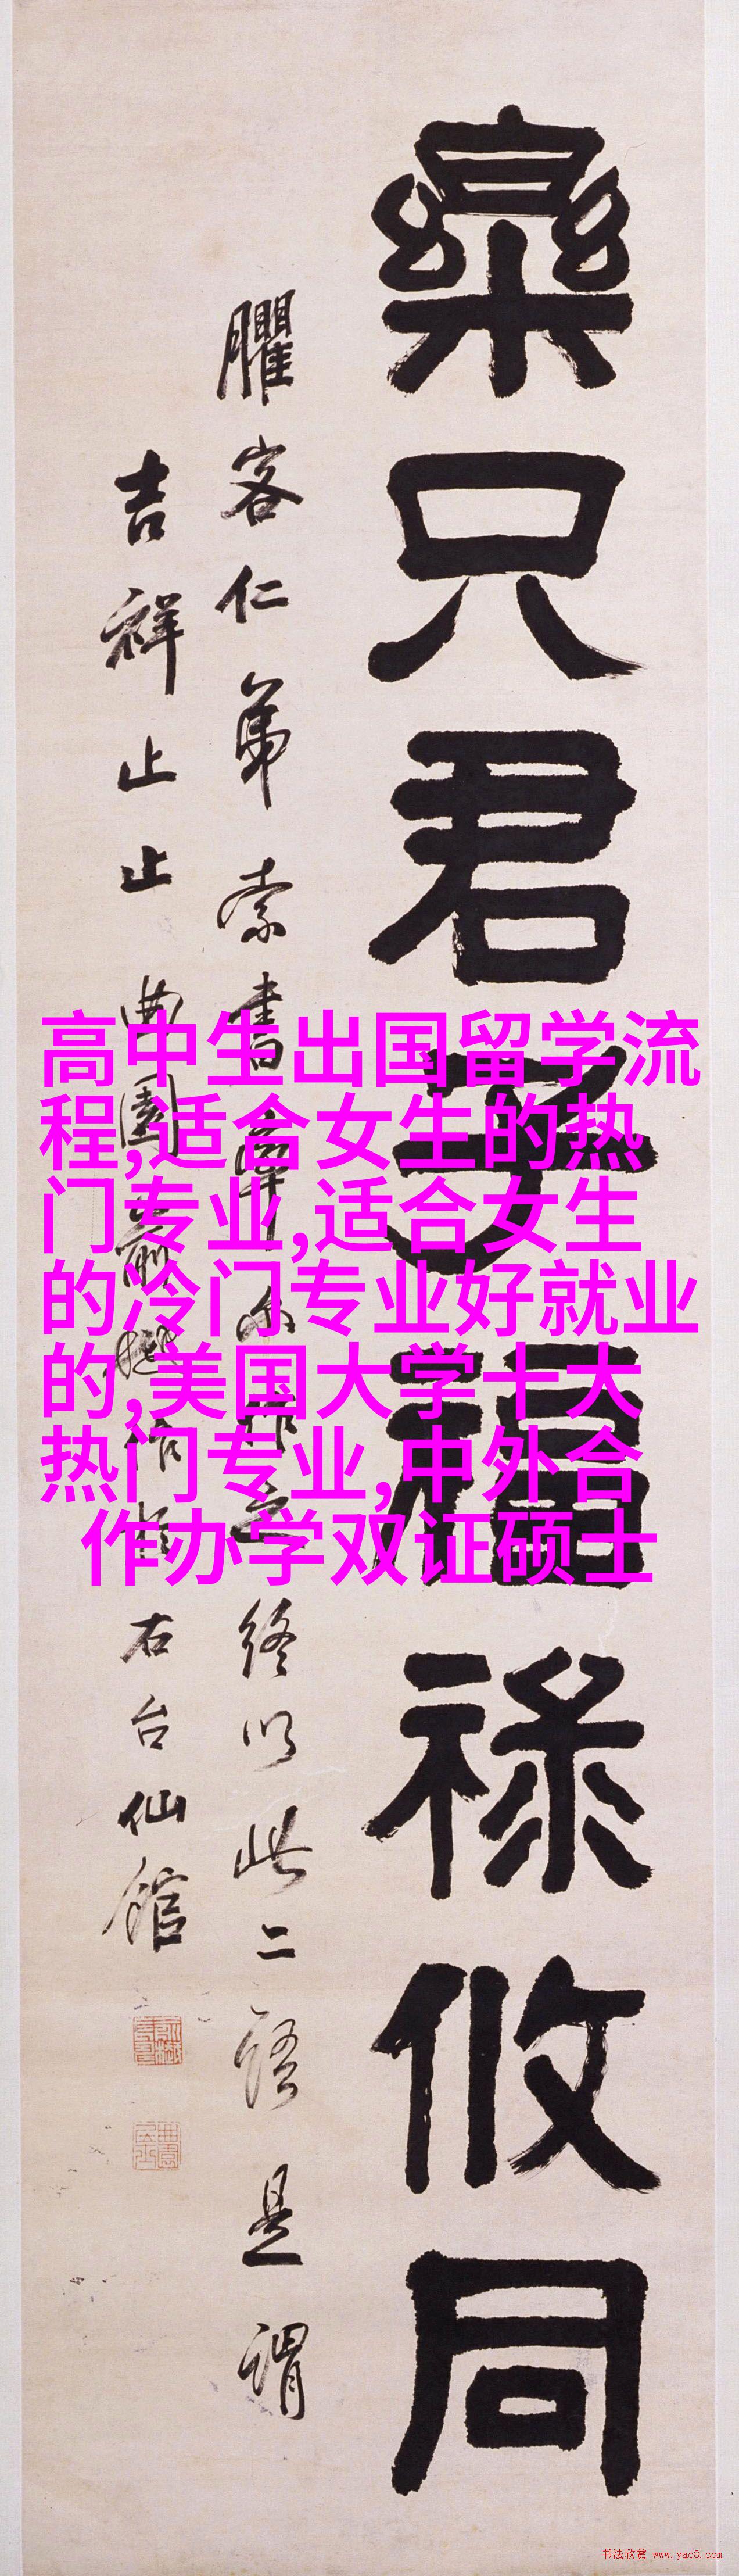 樂只君子福祿攸同
臞客仁弟索書
終以此二語是謂
吉祥止止曲園
右台仙館
高中生出国留学流
程,适合女生的热
门专业,适合女生
的冷门专业好就业
的,美国大学十大
热门专业,中外合
作办学双证硕士
书法欣赏 www.yac8.com